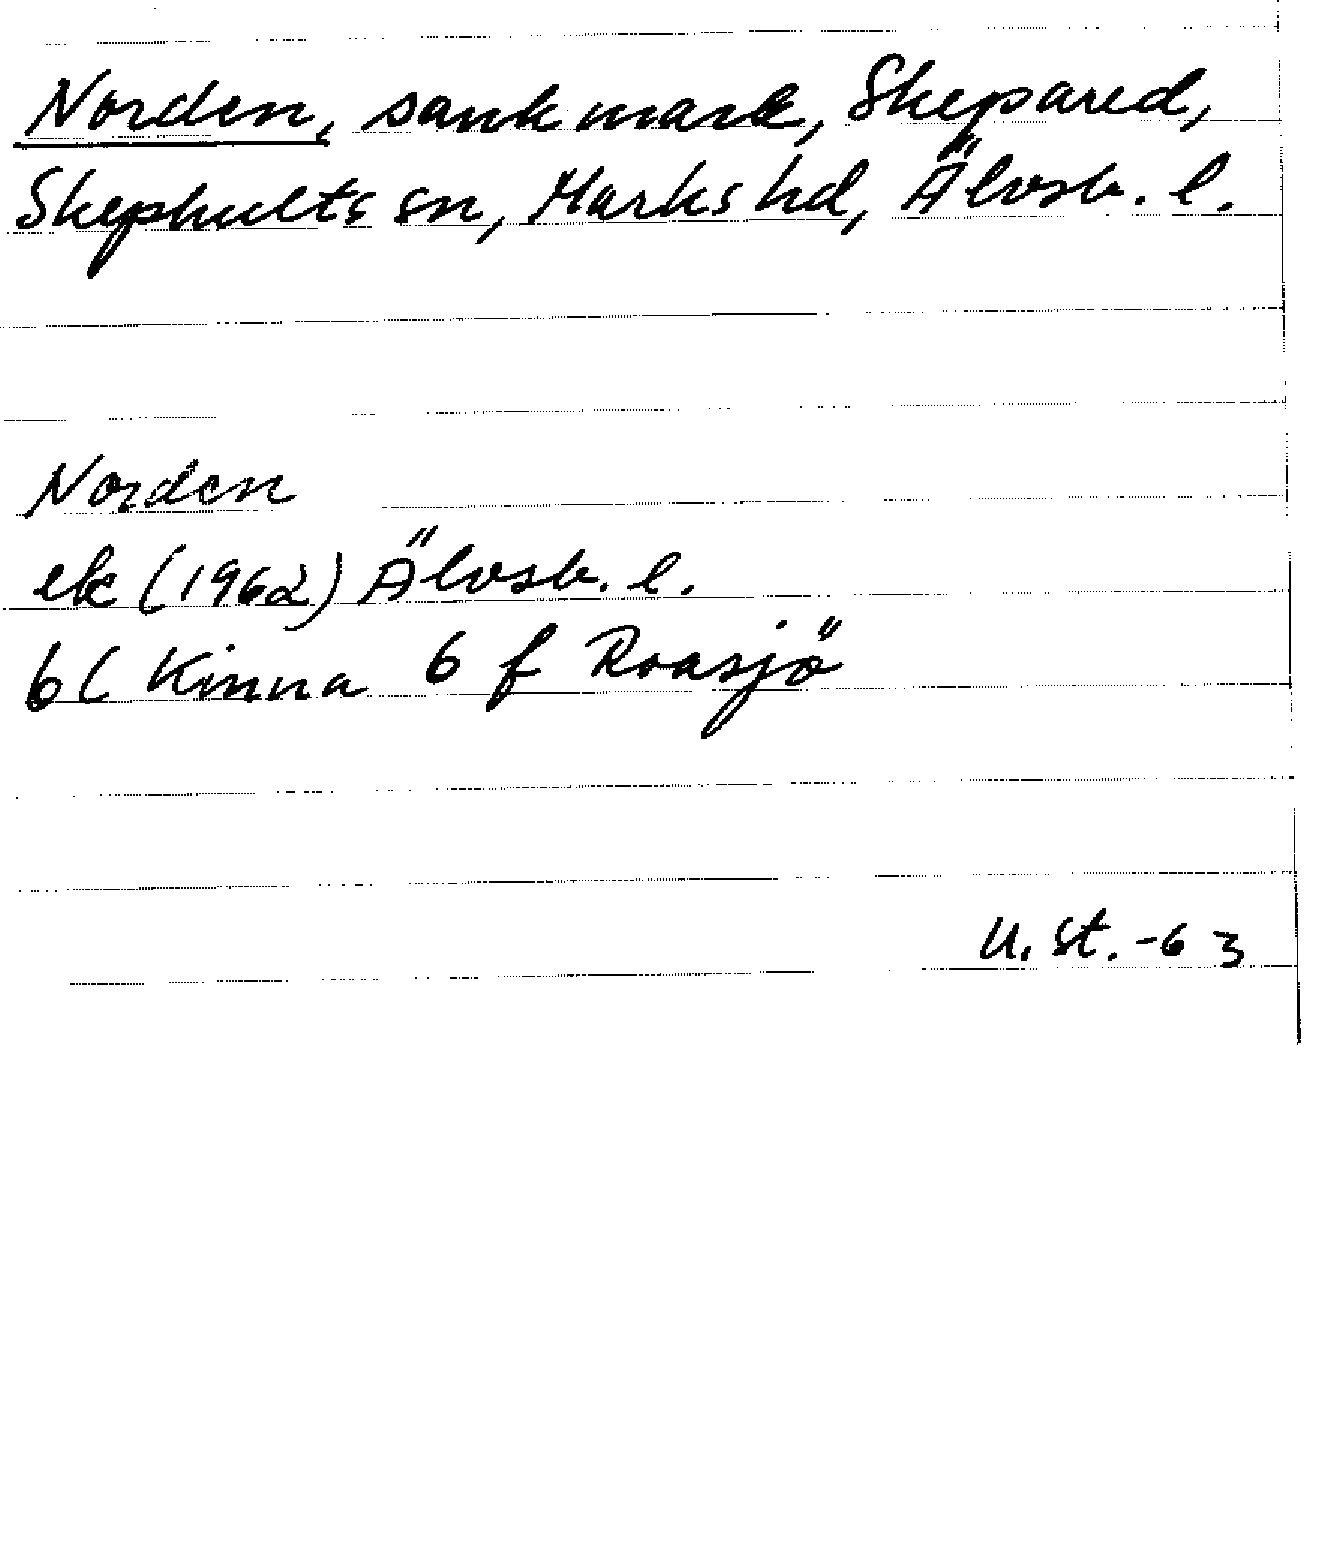 Norden, sank mark, Skepared,
Skephults sn, Marks hd, Älvsb. l.
Norden
ek (1962) Älvsb. l.
6C Kinna 6 f Roasjö
U. St. -63